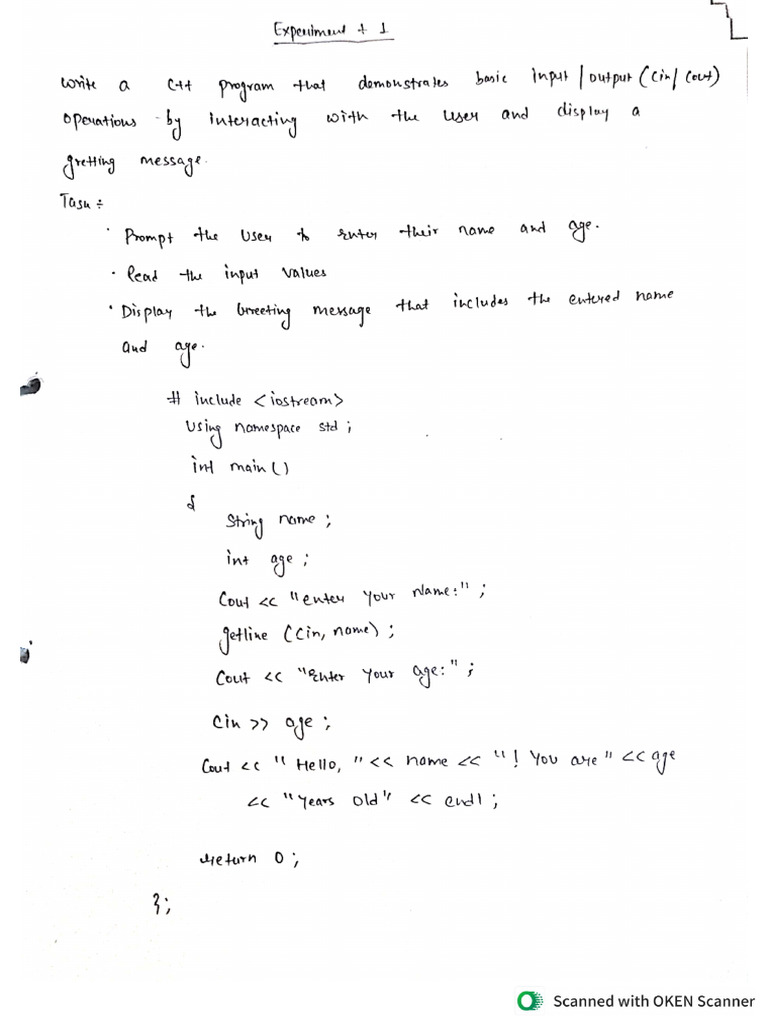 Experiment + 1
Write a C++ program that demonstrates basic input/output (Cin/Cout)
operations by interacting with the user and display a
gretting message.
Task ÷
· Prompt the User to Enter their name and age.
· Read the input values
· Display the Greeting message that includes the entered name
and age.
# include <iostream>
Using namespace std ;
int main()
{
String name ;
int age ;
Cout << "enter your Name:" ;
getline (Cin, name) ;
Cout << "Enter your age:" ;
Cin >> age ;
Cout << " Hello, " << name << "! You are" << age
<< "years old" << endl ;
return 0 ;
};
Scanned with OKEN Scanner